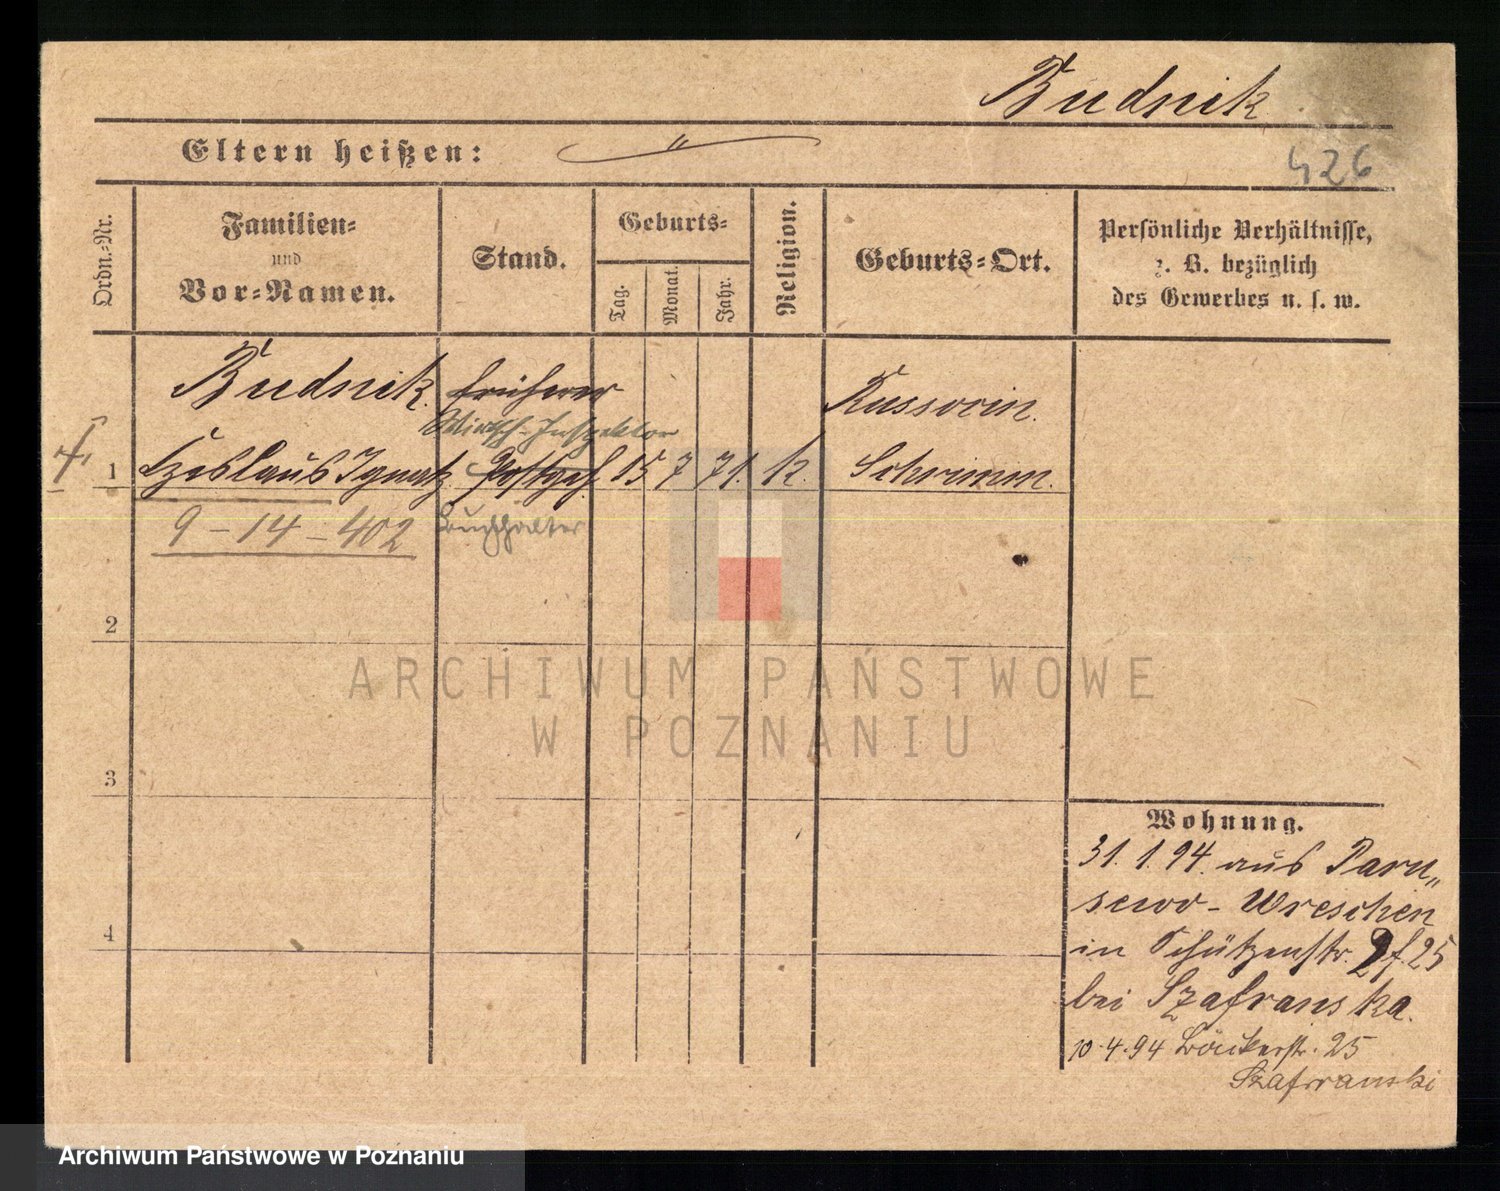 Budnik
Eltern heißen: "
426
Ordn.-Nr.
Familien-
und
Vor-Namen.
Stand.
Geburts-
Tag.
Monat.
Jahr.
Religion.
Geburts-Ort.
Persönliche Verhältnisse,
z. B. bezüglich
des Gewerbes u. s. w.
Budnik. früherer Russocin.
Wirtsch-Inspektor
1 Czeslaus Ignatz Postgeh. 15 7 71. k. Schrimm.
9-14-402 Buchhalter
2
ARCHIWUM PAŃSTWOWE
W POZNANIU
3
Wohnung.
31. 1. 94. aus Paru„
scewo - Wreschen
4
in Schützenstr. 25
bei Szafranska.
10.4.94 Bäckerstr. 25
Szafranski
Archiwum Państwowe w Poznaniu